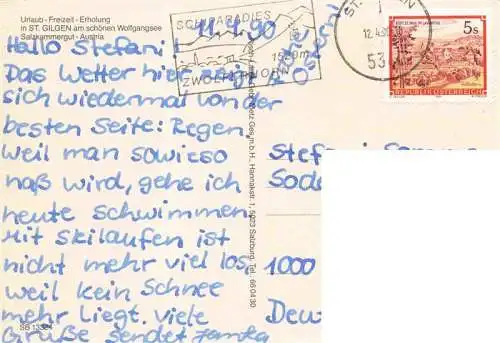 Urlaub - Freizeit - Erholung
in ST. GILGEN am schönen Wolfgangsee
Salzkammergut - Austria
SCHIPARADIES
1520m
ZWÖLFERHORN
12.4.90
5s
REPUBLIK ÖSTERREICH
Hallo Stefani 11.4.90
Das Wetter hier zeigt
sich wiedermal von der
besten Seite: Regen.
Weil man sowieso
naß wird, gehe ich
heute schwimmen.
Mit Skilaufen ist
nicht mehr viel los,
weil kein Schnee
mehr liegt. viele
Grüße sendet
Stefani
1000
Deu
Ges.m.b.H., Hannakstr. 1, 5023 Salzburg, Tel. 66 04 30
SB 13324